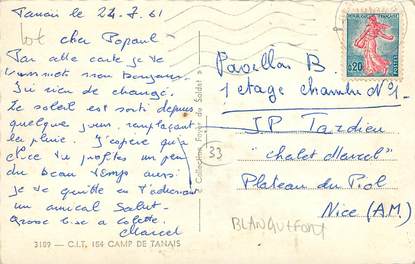 Tanais le 24-7-61
cher Popaul
Par cette carte je te
transmets mon Bonjour.
Ici rien de changé.
Le soleil est sorti depuis
quelque jours remplaçant
la pluie. J'espère qu'a
Nice tu profites un peu
du beau temps aussi
je te quitte en t'adressant
un amical Salut.
Grosse bise a Colette.
Marcel
3109 - C.I.T. 154 CAMP DE TANAIS
Collection Foyer du Soldat
33
REPUBLIQUE FRANCAISE
0,20
POSTES
Pavillon B
1 etage chambre N°1
J P Tardieu
"chalet Marcel"
Plateau du Piol
Nice (A.M.)
BLANQUEFORT